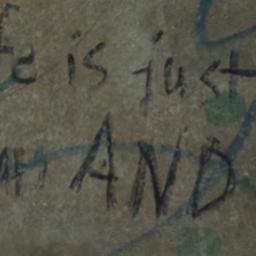 is just
AND